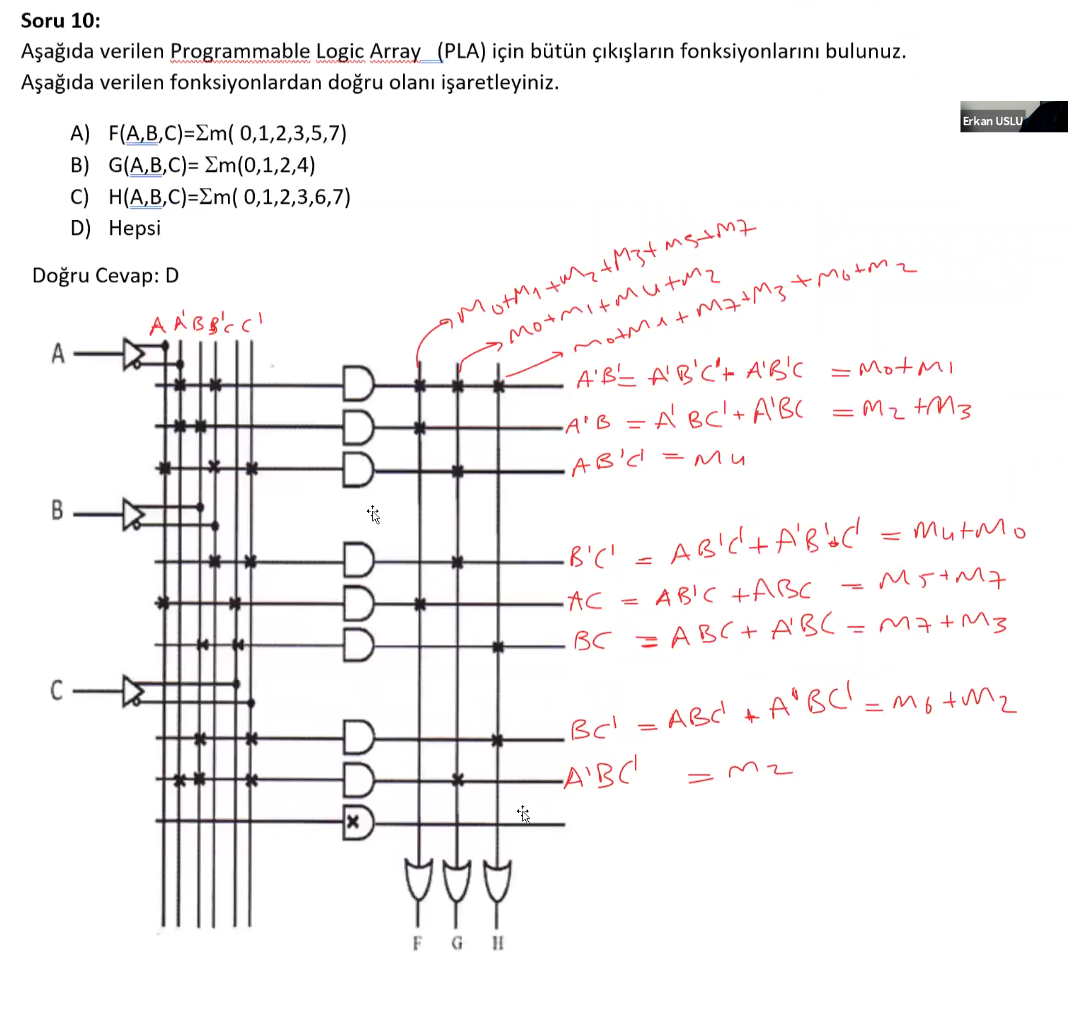 Soru 10:
Aşağıda verilen Programmable Logic Array (PLA) için bütün çıkışların fonksiyonlarını bulunuz.
Aşağıda verilen fonksiyonlardan doğru olanı işaretleyiniz.
Erkan USLU
A) F(A,B,C)=Σm( 0,1,2,3,5,7)
B) G(A,B,C)= Σm(0,1,2,4)
C) H(A,B,C)=Σm( 0,1,2,3,6,7)
D) Hepsi
Doğru Cevap: D
m0+m1+m2+m3+m5+m7
m0+m1+m4+m2
m0+m1+m7+m3+m6+m2
A A' B B' C C'
A
A'B' = A'B'C' + A'B'C = m0+m1
A'B = A'BC' + A'BC = m2+m3
AB'C' = m4
B
B'C' = AB'C' + A'B'C' = m4+m0
AC = AB'C + ABC = m5+m7
BC = ABC + A'BC = m7+m3
C
BC' = ABC' + A'BC' = m6+m2
A'BC' = m2
F G H